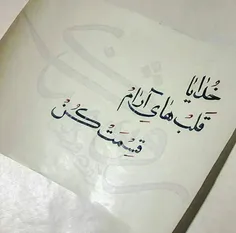 خُدایا
قَلبْ هٰایِ آرٰامْ
قِسْمَتْ کُنْ